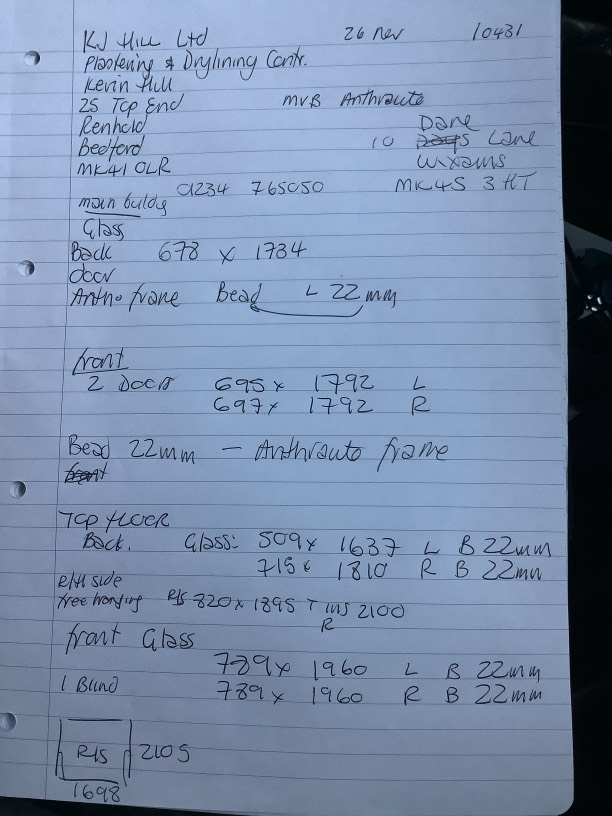 KJ Hill Ltd 26 Nov 10431
Plastering & Drylining Contr.
Kevin Hill
25 Top End MVB Anthracite
Renhold Dane
Bedford 10 Lane
MK41 0LR Wixams
01234 765050 MK45 3HT
main buildg
Glass
Back 678 x 1734
door
Anth. frame Bead L 22mm
front
2 Doors 695 x 1792 L
697 x 1792 R
Bead 22mm - Anthracite frame
front
Top floor
Back. Glass: 509 x 1637 L B 22mm
715 x 1810 R B 22mm
R/H side
free hanging R/S 820 x 1895 T ins 2100
R
front Glass
789 x 1960 L B 22mm
1 Blind 789 x 1960 R B 22mm
R/S 2105
1698